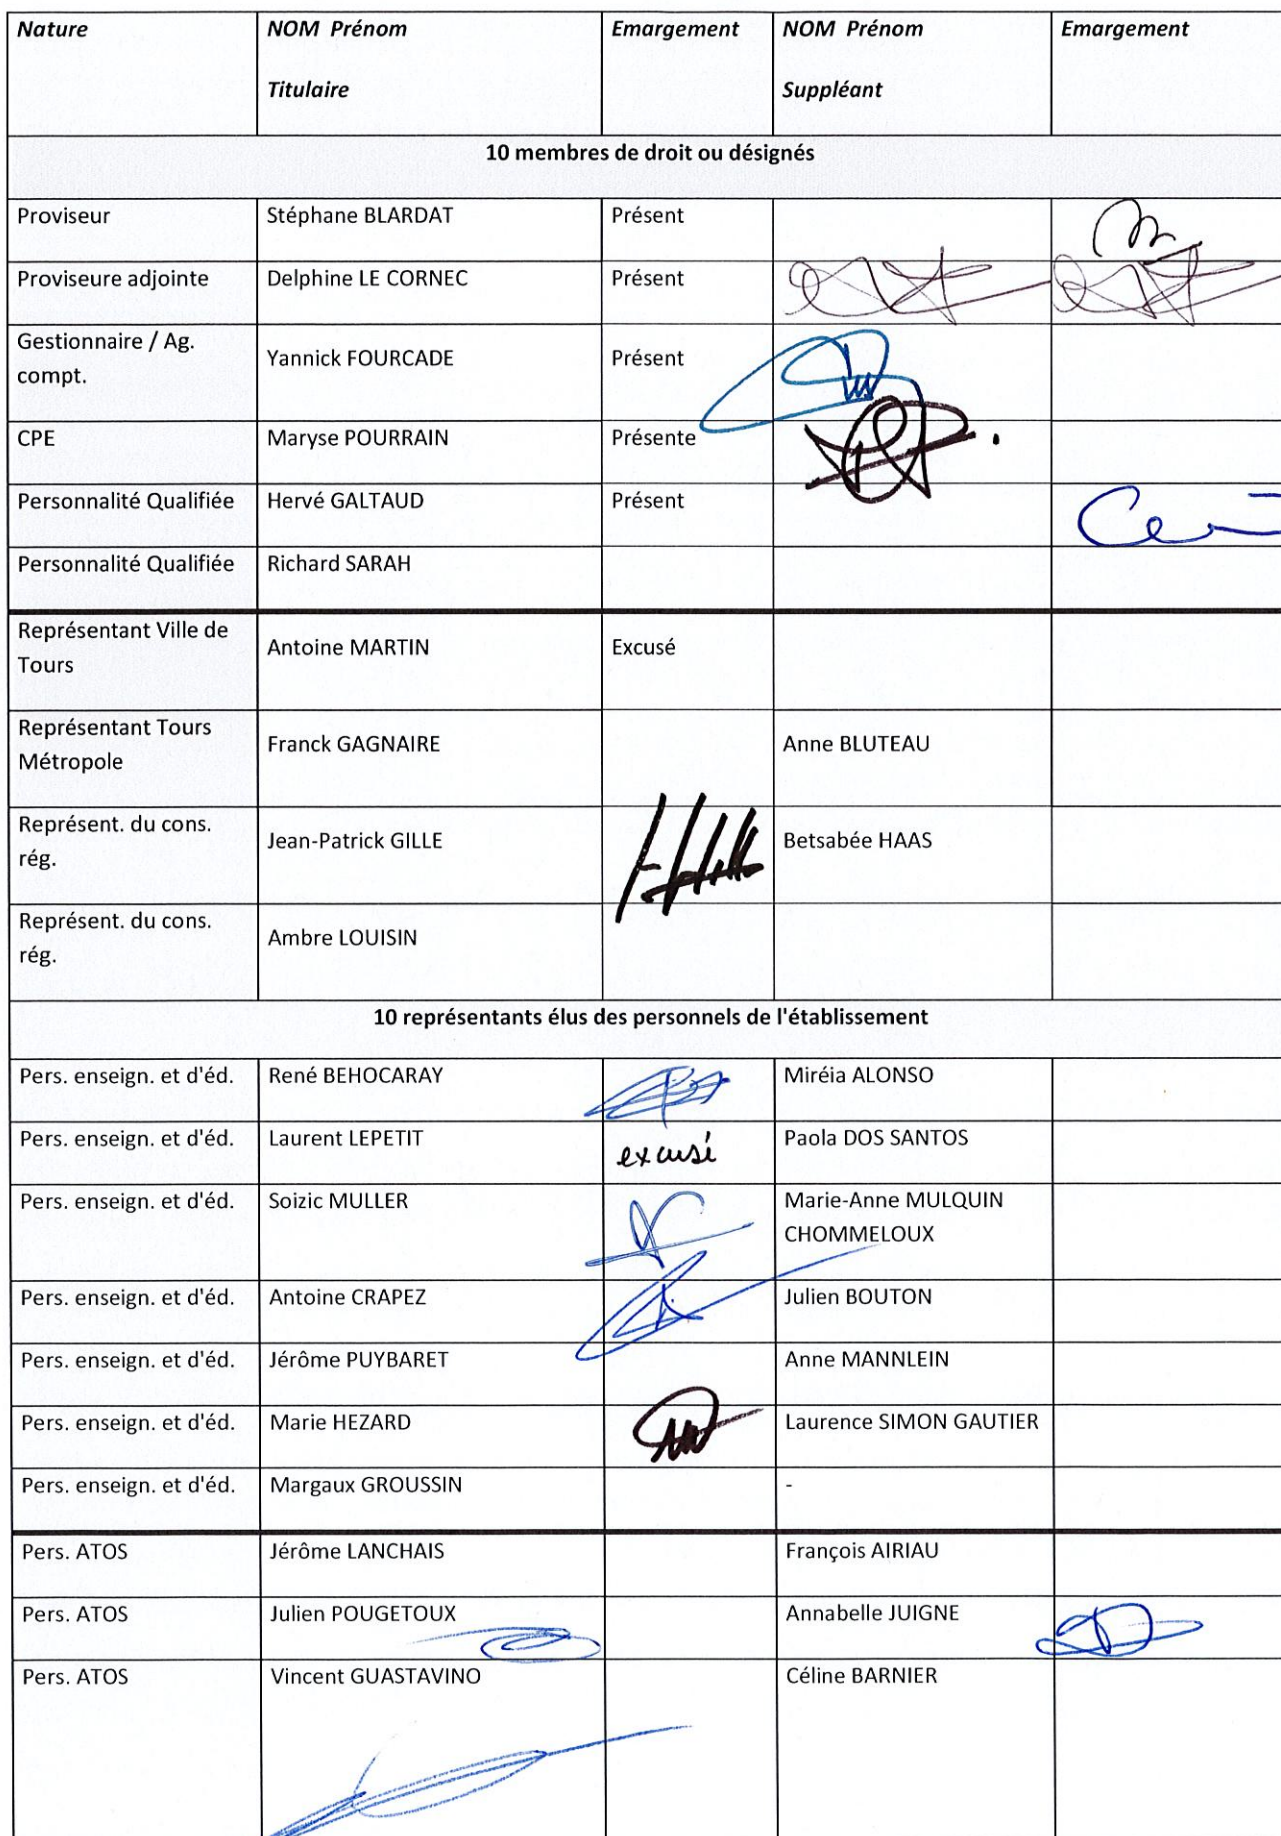 Nature NOM Prénom Emargement NOM Prénom Emargement
Titulaire Suppléant
10 membres de droit ou désignés
Proviseur Stéphane BLARDAT Présent
Proviseure adjointe Delphine LE CORNEC Présent
Gestionnaire / Ag.
compt. Yannick FOURCADE Présent
CPE Maryse POURRAIN Présente
Personnalité Qualifiée Hervé GALTAUD Présent
Personnalité Qualifiée Richard SARAH
Représentant Ville de
Tours Antoine MARTIN Excusé
Représentant Tours
Métropole Franck GAGNAIRE Anne BLUTEAU
Représent. du cons.
rég. Jean-Patrick GILLE Betsabée HAAS
Représent. du cons.
rég. Ambre LOUISIN
10 représentants élus des personnels de l'établissement
Pers. enseign. et d'éd. René BEHOCARAY Miréia ALONSO
Pers. enseign. et d'éd. Laurent LEPETIT excusé Paola DOS SANTOS
Pers. enseign. et d'éd. Soizic MULLER Marie-Anne MULQUIN
CHOMMELOUX
Pers. enseign. et d'éd. Antoine CRAPEZ Julien BOUTON
Pers. enseign. et d'éd. Jérôme PUYBARET Anne MANNLEIN
Pers. enseign. et d'éd. Marie HEZARD Laurence SIMON GAUTIER
Pers. enseign. et d'éd. Margaux GROUSSIN -
Pers. ATOS Jérôme LANCHAIS François AIRIAU
Pers. ATOS Julien POUGETOUX Annabelle JUIGNE
Pers. ATOS Vincent GUASTAVINO Céline BARNIER